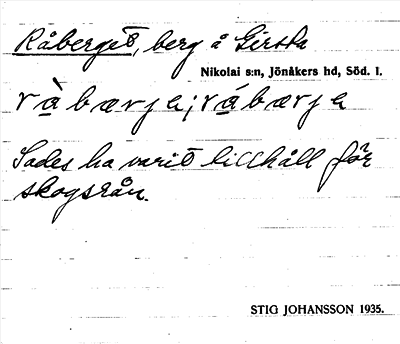 Råberget, berg å Girsta
Nikolai s:n, Jönåkers hd, Söd. l.
ràbærja; rábærja
Sades ha varit tillhåll för
skogsrån.
STIG JOHANSSON 1935.